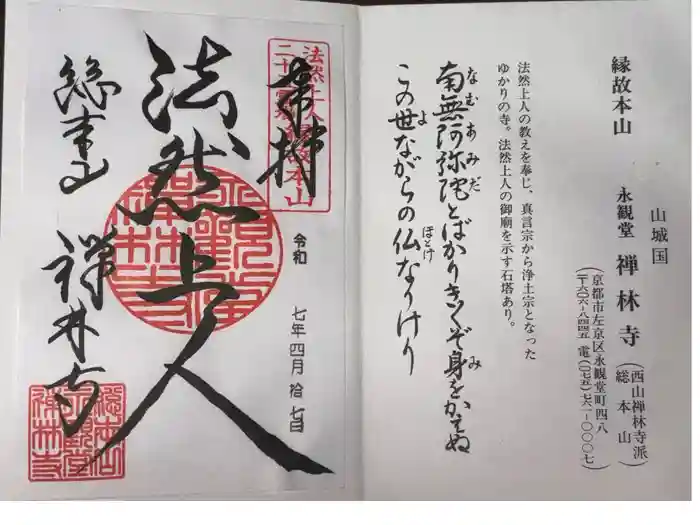 山城国
縁故本山　永観堂　禅林寺
（西山禅林寺派
総本山）
（京都市左京区永観堂町四八
〒六〇六-八四四五　電（〇七五）七六一-〇〇〇七）
法然上人の教えを奉じ、真言宗から浄土宗となった
ゆかりの寺。法然上人の御廟を示す石塔あり。
南無阿弥陀とばかりきくぞ身をかへぬ
なむあみだ
み
この世ながらの仏なりけり
よ
ほとけ
奉拝
法然上人縁故本山
令和　七年四月拾七日
法然上人
総本山　禅林寺
総本山
永観堂
禅林寺